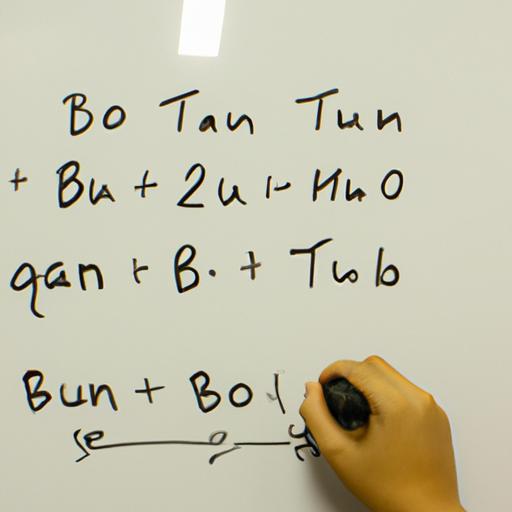 Bo Tan Tun
+ Bu + 2u
qan + B. + Tub
Bun + Bo